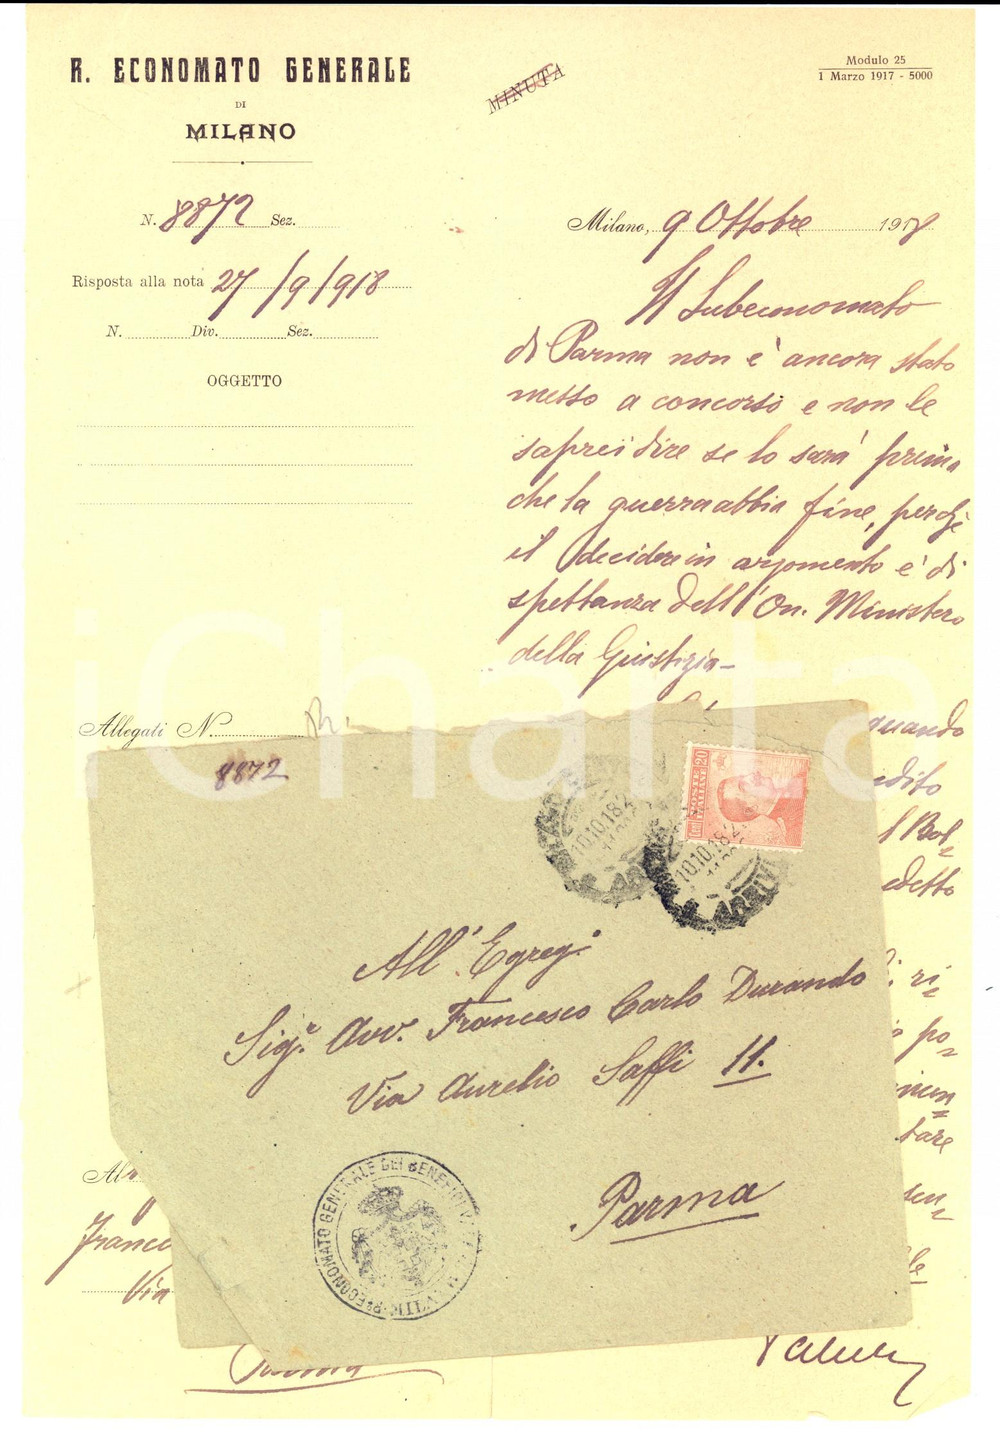 R. ECONOMATO GENERALE
DI
MILANO
MINUTA
Modulo 25
1 Marzo 1917 - 5000
N. 8872 Sez.
Milano, 9 Ottobre 1918
Risposta alla nota 27/9/918
N. Div. Sez.
OGGETTO
Il Subeconomato
di Parma non è ancora stato
messo a concorso e non le
saprei dire se lo sarà prima
che la guerra abbia fine, perchè
il decidere in argomento è di
spettanza dell'On. Ministero
della Giustizia -
Allegati N.
quando
edito
l Bol-
edetto
ri-
po-
tare
le
8872
POSTE ITALIANE
Cent 20
10.10.18.2
10.10.18.2
All'Egreg.º
Sig.r Avv. Francesco Carlo Durando
Via Aurelio Saffi 11.
Parma
Rº ECONOMATO GENERALE DEI BENEFICI VACANTI
Al
Franc
Via
Parma
iCharta